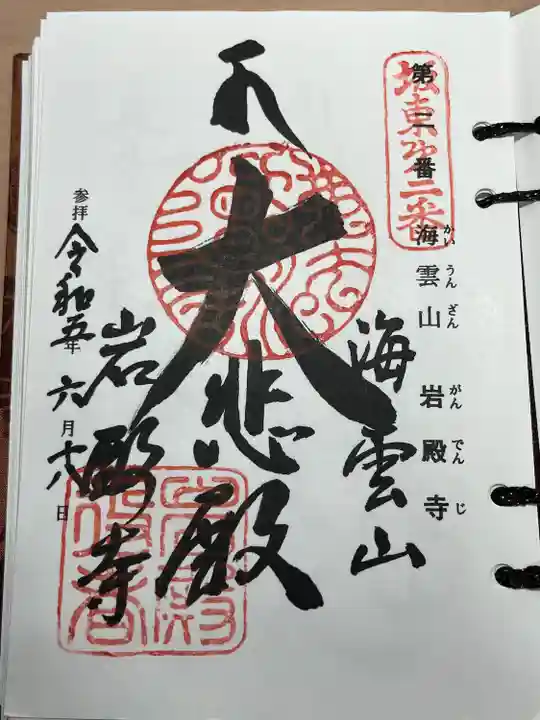 坂東第二番
第二番 海雲山 岩殿寺
かいうんざん がんでんじ
海雲山
大悲殿
岩殿寺
参拝 令和五年 六月十八日